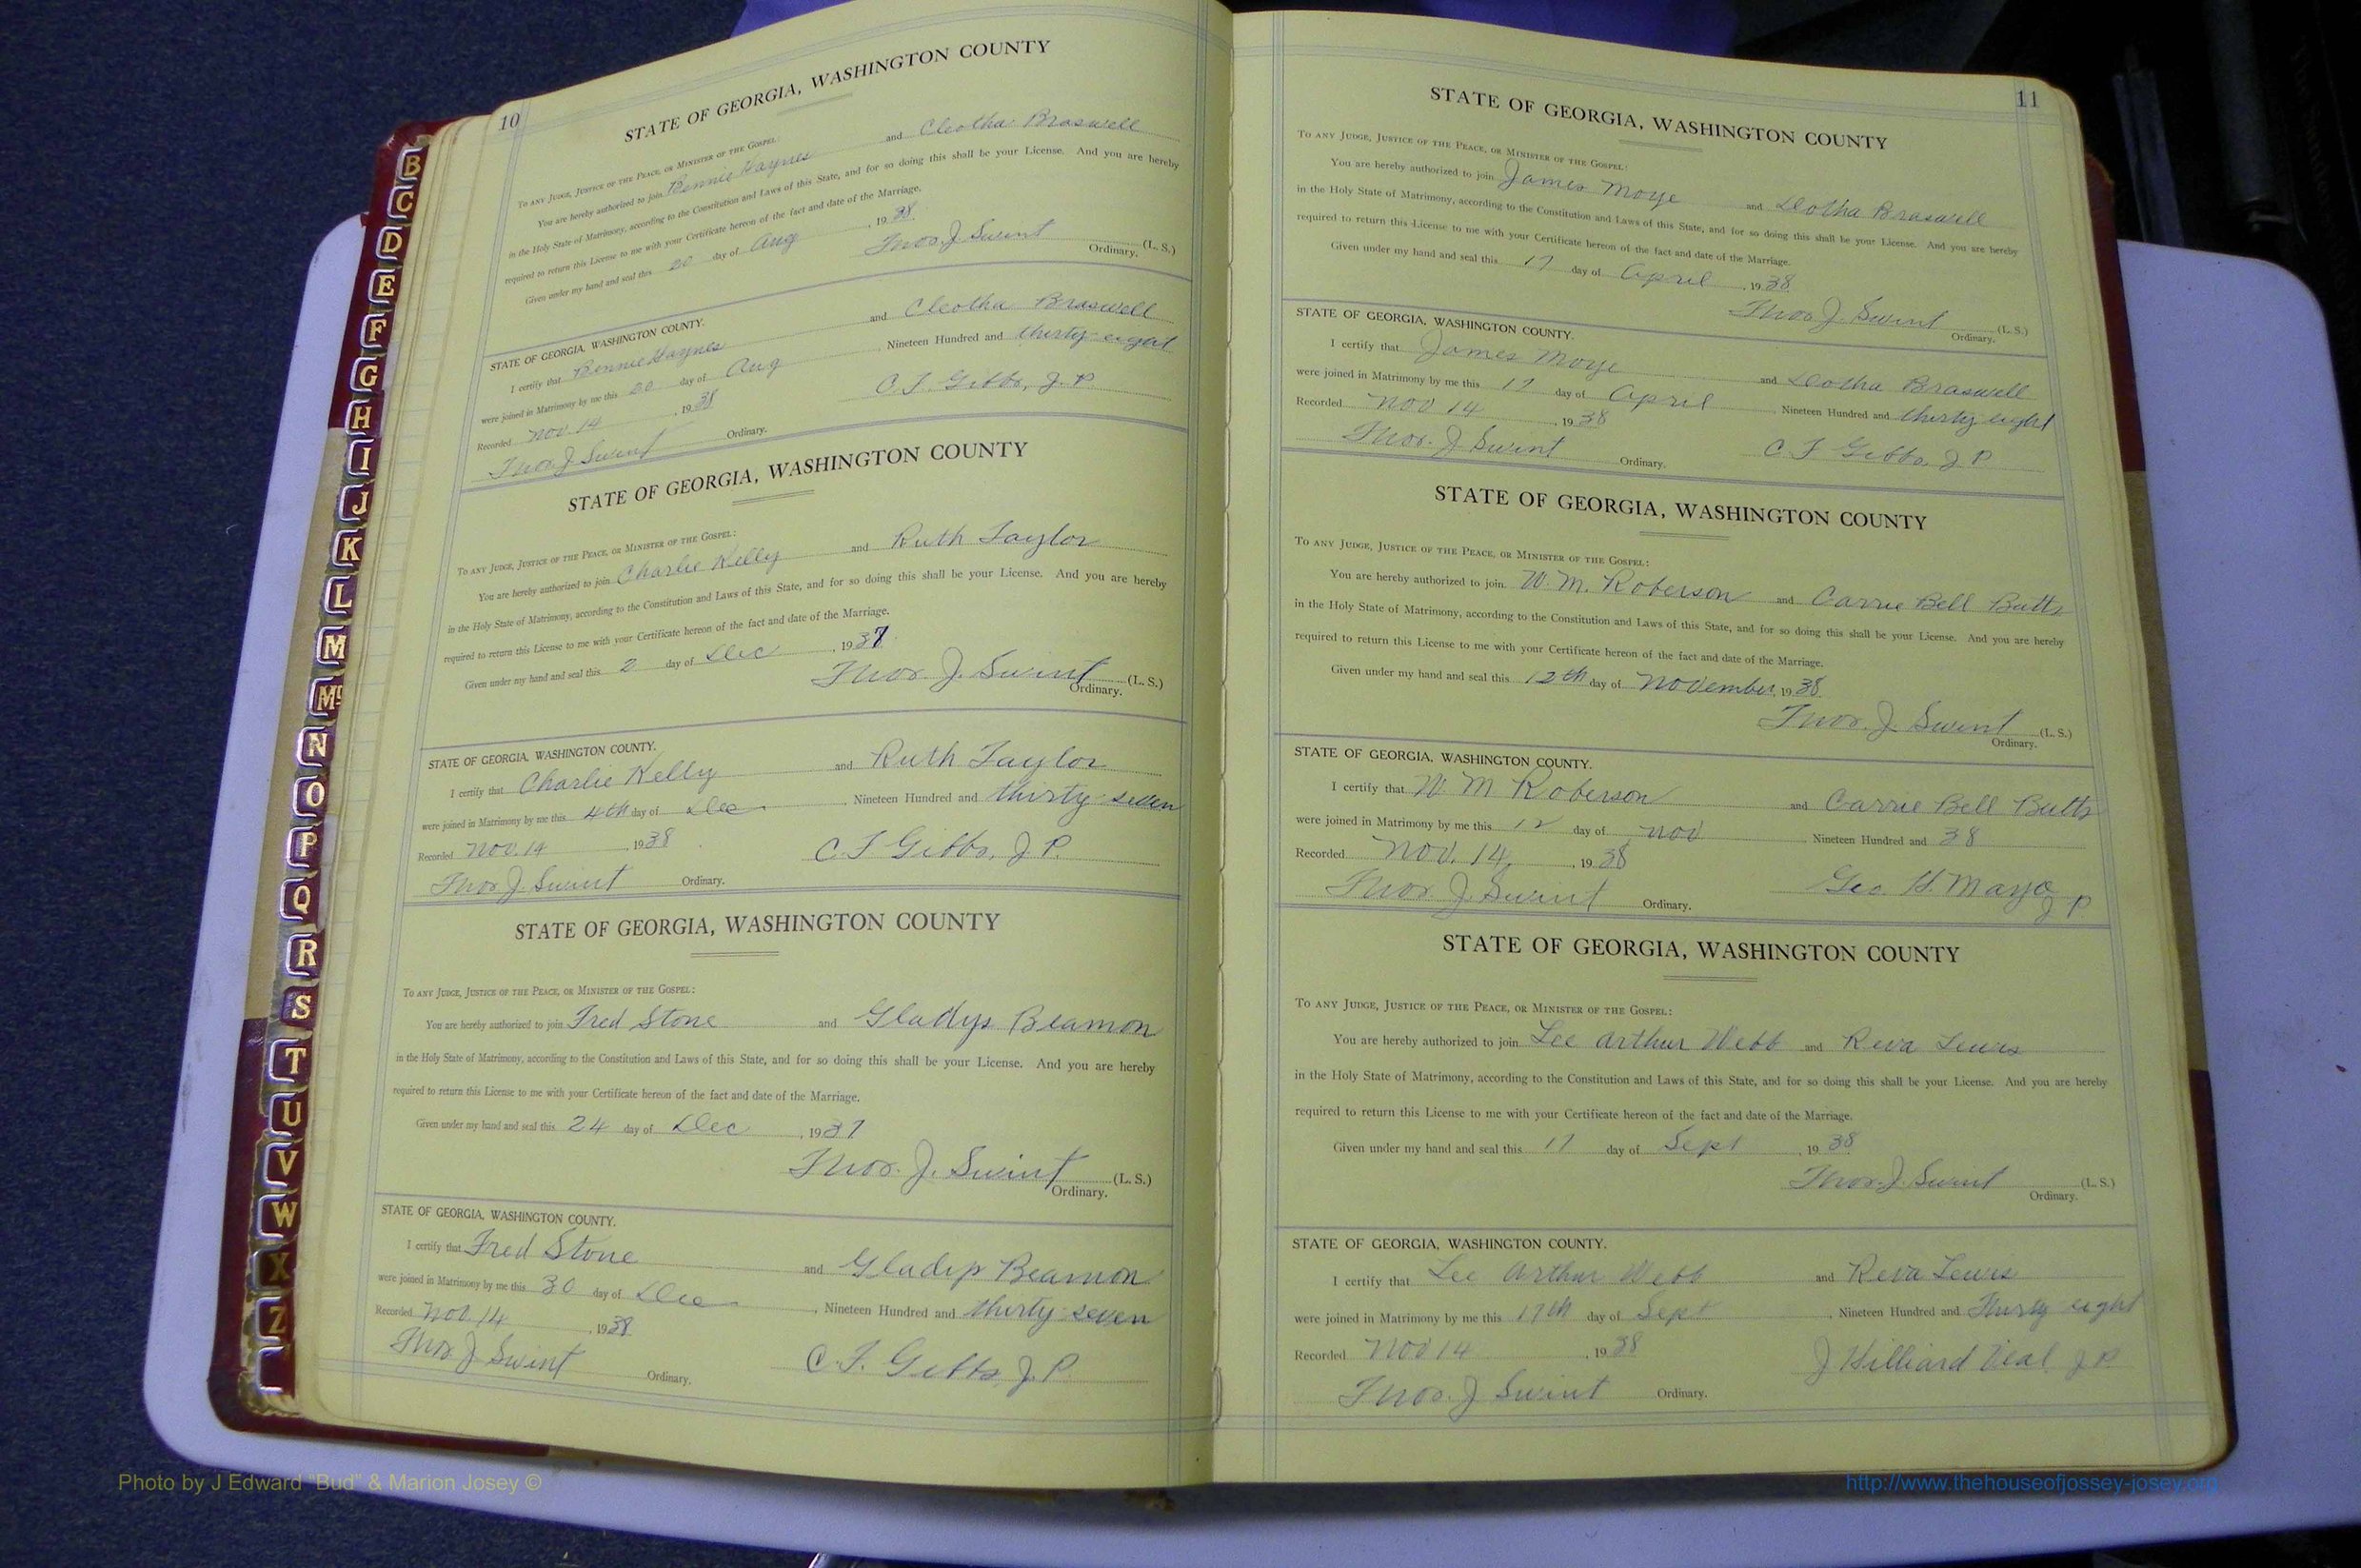 B
C
D
E
F
G
H
I
J
K
L
M
Mc
N
O
P
Q
R
S
T
U
V
W
X
Z
10
STATE OF GEORGIA, WASHINGTON COUNTY
TO ANY JUDGE, JUSTICE OF THE PEACE, OR MINISTER OF THE GOSPEL:
You are hereby authorized to join Bennie Haynes and Cleotha Braswell
in the Holy State of Matrimony, according to the Constitution and Laws of this State, and for so doing this shall be your License. And you are hereby
required to return this License to me with your Certificate hereon of the fact and date of the Marriage.
Given under my hand and seal this 20 day of Aug, 1938
Thos. J. Swint (L. S.)
Ordinary.
STATE OF GEORGIA, WASHINGTON COUNTY.
I certify that Bennie Haynes and Cleotha Braswell
were joined in Matrimony by me this 20 day of Aug, Nineteen Hundred and thirty-eight
Recorded Nov. 14, 1938 C. F. Gibbs, J. P.
Thos J Swint Ordinary.
STATE OF GEORGIA, WASHINGTON COUNTY
TO ANY JUDGE, JUSTICE OF THE PEACE, OR MINISTER OF THE GOSPEL:
You are hereby authorized to join Charlie Kelly and Ruth Taylor
in the Holy State of Matrimony, according to the Constitution and Laws of this State, and for so doing this shall be your License. And you are hereby
required to return this License to me with your Certificate hereon of the fact and date of the Marriage.
Given under my hand and seal this 2 day of Dec, 1937
Thos. J. Swint (L. S.)
Ordinary.
STATE OF GEORGIA, WASHINGTON COUNTY.
I certify that Charlie Kelly and Ruth Taylor
were joined in Matrimony by me this 4th day of Dec, Nineteen Hundred and thirty-seven
Recorded Nov. 14, 1938 C. F. Gibbs, J P.
Thos J. Swint Ordinary.
STATE OF GEORGIA, WASHINGTON COUNTY
TO ANY JUDGE, JUSTICE OF THE PEACE, OR MINISTER OF THE GOSPEL:
You are hereby authorized to join Fred Stone and Gladys Beamon
in the Holy State of Matrimony, according to the Constitution and Laws of this State, and for so doing this shall be your License. And you are hereby
required to return this License to me with your Certificate hereon of the fact and date of the Marriage.
Given under my hand and seal this 24 day of Dec, 1937
Thos. J. Swint (L. S.)
Ordinary.
STATE OF GEORGIA, WASHINGTON COUNTY.
I certify that Fred Stone and Gladys Beamon
were joined in Matrimony by me this 30 day of Dec, Nineteen Hundred and thirty-seven
Recorded Nov 14, 1938
Thos J Swint Ordinary. C. F. Gibbs, J. P.
11
STATE OF GEORGIA, WASHINGTON COUNTY
TO ANY JUDGE, JUSTICE OF THE PEACE, OR MINISTER OF THE GOSPEL:
You are hereby authorized to join James Moye and Dotha Braswell
in the Holy State of Matrimony, according to the Constitution and Laws of this State, and for so doing this shall be your License. And you are hereby
required to return this License to me with your Certificate hereon of the fact and date of the Marriage.
Given under my hand and seal this 17 day of April, 1938
Thos. J. Swint (L. S.)
Ordinary.
STATE OF GEORGIA, WASHINGTON COUNTY.
I certify that James Moye and Dotha Braswell
were joined in Matrimony by me this 17 day of April, Nineteen Hundred and thirty eight
Recorded Nov 14, 1938
Thos. J Swint Ordinary. C F Gibbs, J. P.
STATE OF GEORGIA, WASHINGTON COUNTY
TO ANY JUDGE, JUSTICE OF THE PEACE, OR MINISTER OF THE GOSPEL:
You are hereby authorized to join W. M. Roberson and Carrie Bell Butts
in the Holy State of Matrimony, according to the Constitution and Laws of this State, and for so doing this shall be your License. And you are hereby
required to return this License to me with your Certificate hereon of the fact and date of the Marriage.
Given under my hand and seal this 12th day of November, 1938
Thos. J. Swint (L. S.)
Ordinary.
STATE OF GEORGIA, WASHINGTON COUNTY.
I certify that W. M Roberson and Carrie Bell Butts
were joined in Matrimony by me this 12 day of Nov, Nineteen Hundred and 38
Recorded Nov. 14, 1938
Thos. J. Swint Ordinary. Geo. H. Mayo J P
STATE OF GEORGIA, WASHINGTON COUNTY
TO ANY JUDGE, JUSTICE OF THE PEACE, OR MINISTER OF THE GOSPEL:
You are hereby authorized to join Lee Arthur Webb and Reva Lewis
in the Holy State of Matrimony, according to the Constitution and Laws of this State, and for so doing this shall be your License. And you are hereby
required to return this License to me with your Certificate hereon of the fact and date of the Marriage.
Given under my hand and seal this 17 day of Sept, 1938
Thos. J. Swint (L. S.)
Ordinary.
STATE OF GEORGIA, WASHINGTON COUNTY.
I certify that Lee Arthur Webb and Reva Lewis
were joined in Matrimony by me this 17th day of Sept, Nineteen Hundred and Thirty-eight
Recorded Nov 14, 1938 J Hilliard Veal J P.
Thos. J Swint Ordinary.
Photo by J Edward "Bud" & Marion Josey ©
http://www.thehouseofjossey-josey.org